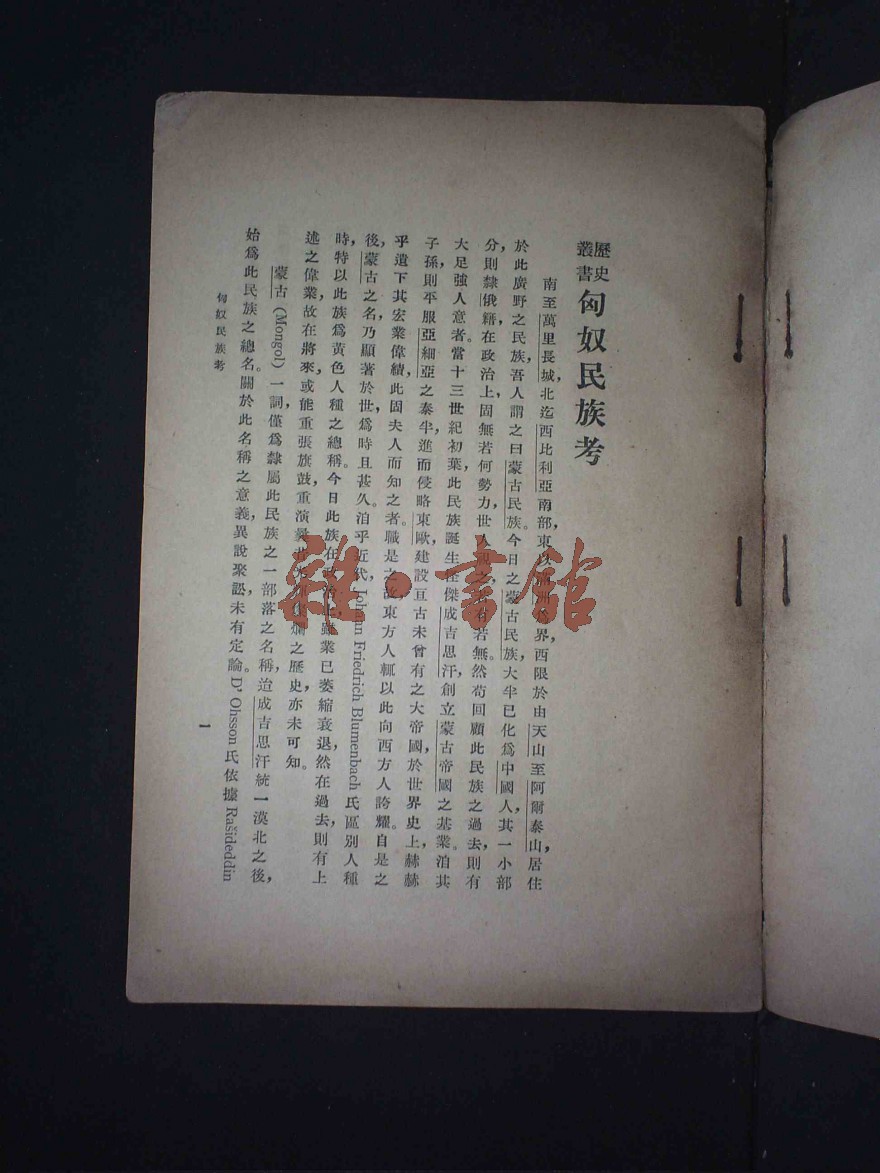 歷史
叢書
匈奴民族考
南至萬里長城,北迄西比利亞南部,東以滿洲為界,西限於由天山至阿爾泰山,居住
於此廣野之民族,吾人謂之曰蒙古民族。今日之蒙古民族,大半已化為中國人,其一小部
分,則隸俄籍,在政治上,固無若何勢力,世人視之,若有若無。然苟回顧此民族之過去,則有
大足強人意者。當十三世紀初葉,此民族誕生怪傑成吉思汗,創立蒙古帝國之基業。洎其
子孫,則平服亞細亞之泰半,進而侵略東歐,建設亘古未曾有之大帝國,於世界史上,赫赫
乎遺下其宏業偉績,此固夫人而知之者。職是之故,東方人輒以此向西方人誇耀。自是之
後,蒙古之名,乃顯著於世,為時且甚久。洎乎近代,Johann Friedrich Blumenbach 氏區別人種
時,特以此族為黃色人種之總稱。今日此族在政治上,雖業已萎縮衰退,然在過去,則有上
述之偉業,故在將來,或能重張旗鼓,重演爛之歷史,亦未可知。
蒙古 (Mongol) 一詞,僅為隸屬此民族之一部落之名稱,迨成吉思汗統一漠北之後,
始為此民族之總名。關於此名稱之意義,異說聚訟,未有定論。D'Ohsson 氏依據 Rašideddin
匈奴民族考
一
雜·書館